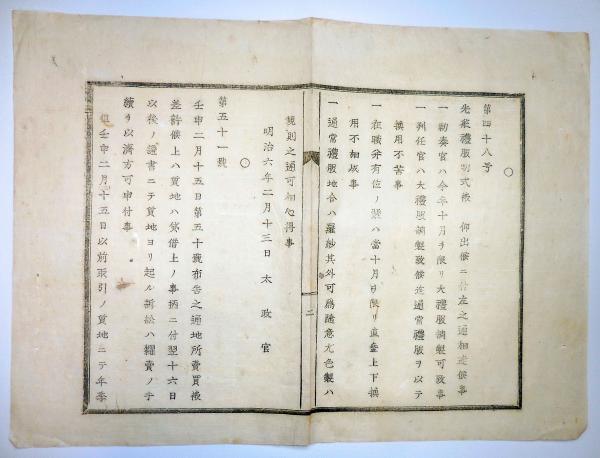 第四十八号
先般禮服制式被　仰出候ニ付左之通相達候事
一勅奏官ハ今年十月ヲ限リ大禮服調製可致事
一判任官ハ大禮服調製致候迄通常禮服ヲ以テ
換用不苦事
一在職弁有位ノ輩ハ當十月ヲ限リ直垂上下換
用不相成事
一通常禮服地合ハ羅紗其外可為随意尤色製ハ
二
規則之通可相心得事
明治六年二月十三日　太政官
第五十一號
壬申二月十五日第五十號布告之通地所賣買被
差許候上ハ質地ハ貸借上ノ事柄ニ付翌十六日
以後ノ證書ニテ質地ヨリ起ル訴訟ハ糶賣ノ手
續ヲ以濟方可申付事
但壬申二月十五日以前取引ノ質地ニテ年季